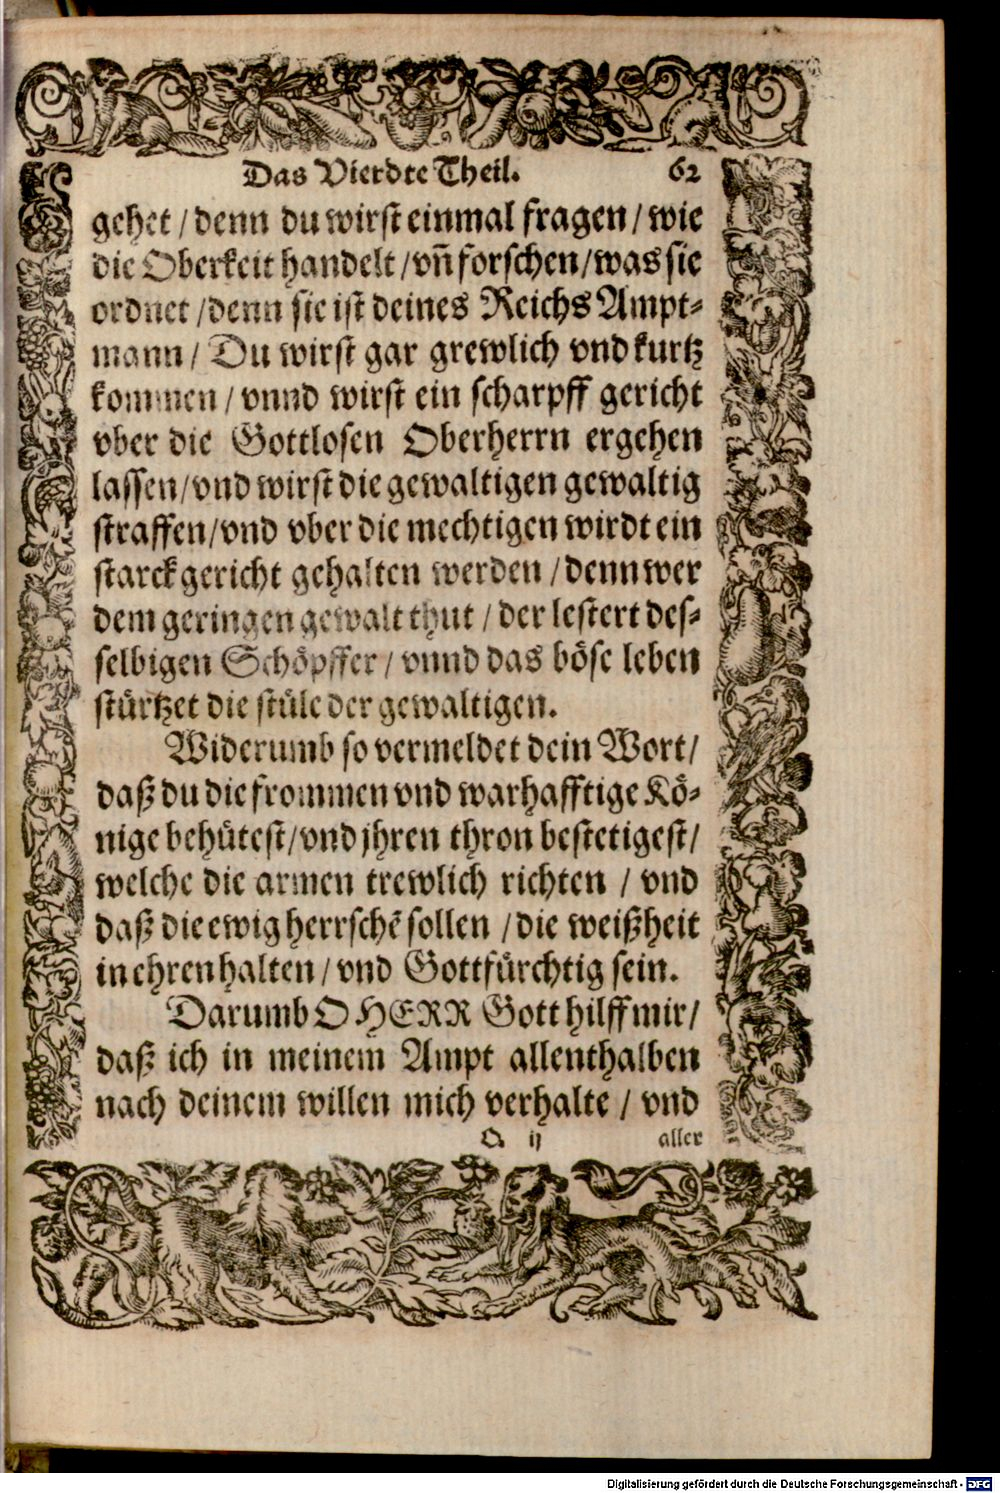 Das Vierdte Theil. 62
gehet / denn du wirst einmal fragen / wie
die Oberkeit handelt / vñ forschen / was sie
ordnet / denn sie ist deines Reichs Ampt⸗
mann / Du wirst gar grewlich vnd kurtz
kommen / vnnd wirst ein scharpff gericht
vber die Gottlosen Oberherrn ergehen
lassen / vnd wirst die gewaltigen gewaltig
straffen / vnd vber die mechtigen wirdt ein
starck gericht gehalten werden / denn wer
dem geringen gewalt thut / der lestert des⸗
selbigen Schöpffer / vnnd das böse leben
stürtzet die stüle der gewaltigen.
Widerumb so vermeldet dein Wort /
daß du die frommen vnd warhafftige Kö⸗
nige behütest / vnd jhren thron bestetigest /
welche die armen trewlich richten / vnd
daß die ewig herrschẽ sollen / die weißheit
in ehren halten / vnd Gottfürchtig sein.
Darumb O HERR Gott hilff mir /
daß ich in meinem Ampt allenthalben
nach deinem willen mich verhalte / vnd
Q ij aller
Digitalisierung gefördert durch die Deutsche Forschungsgemeinschaft - DFG